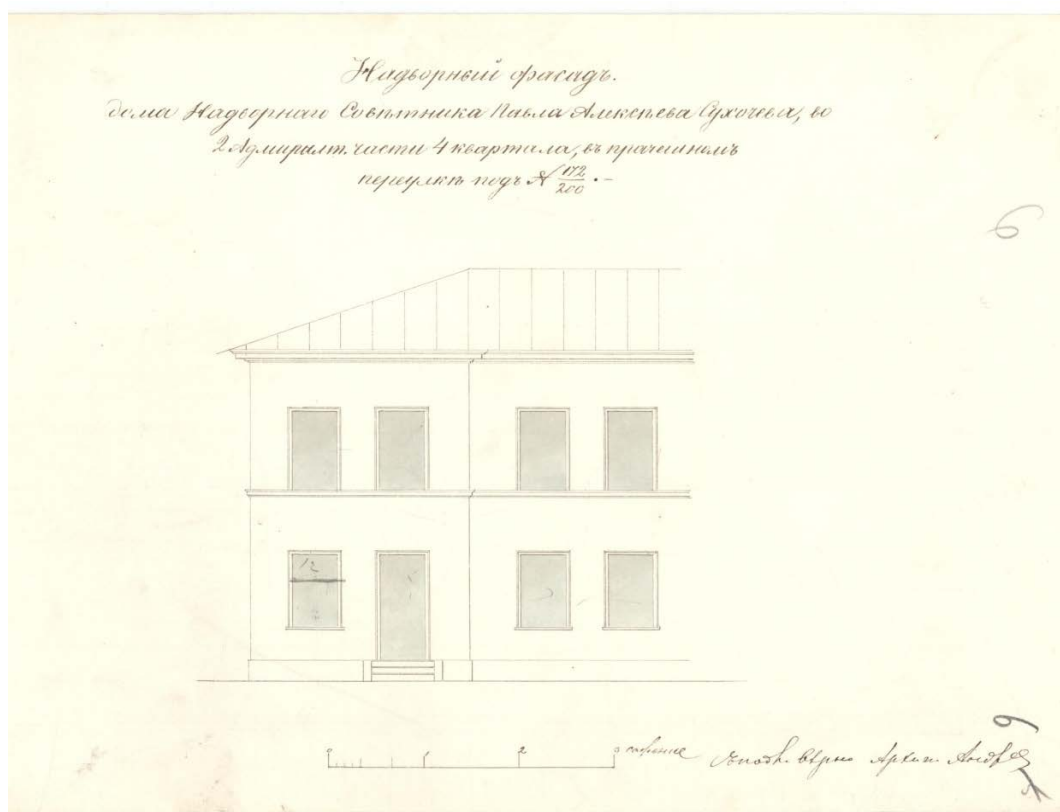 Надворный фасадъ.
дома Надворнаго Совѣтника Павла Алексѣева Сухочева, во
2 Адмиралт. части 4 квартала, въ прачешномъ
переулкѣ подъ № 172/200 . –
6
12
0 1 2 3 сажение
вѣрно Архит.
6